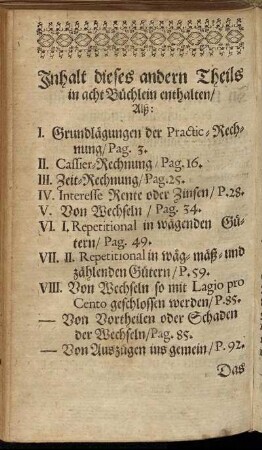 Inhalt dieses andern Theils
in acht Büchlein enthalten/
Alß:
I. Grundlägungen der Practic-Rech-
nung/Pag. 3.
II. Cassier-Rechnung/Pag.16.
III. Zeit-Rechnung/Pag.25.
IV. Interesse Rente oder Zinsen/P.28.
V. Von Wechseln / Pag. 34.
VI. I, Repetitional in wägenden Gü-
tern/ Pag. 49.
VII. II. Repetitional in wäg-mäß-und
zählenden Gütern/P. 59.
VIII. Von Wechseln so mit Lagio pro
Cento geschlossen werden/P.85.
— Von Vortheilen oder Schaden
der Wechseln/Pag. 85.
— Von Auszügen ins gemein/P. 92.
Das